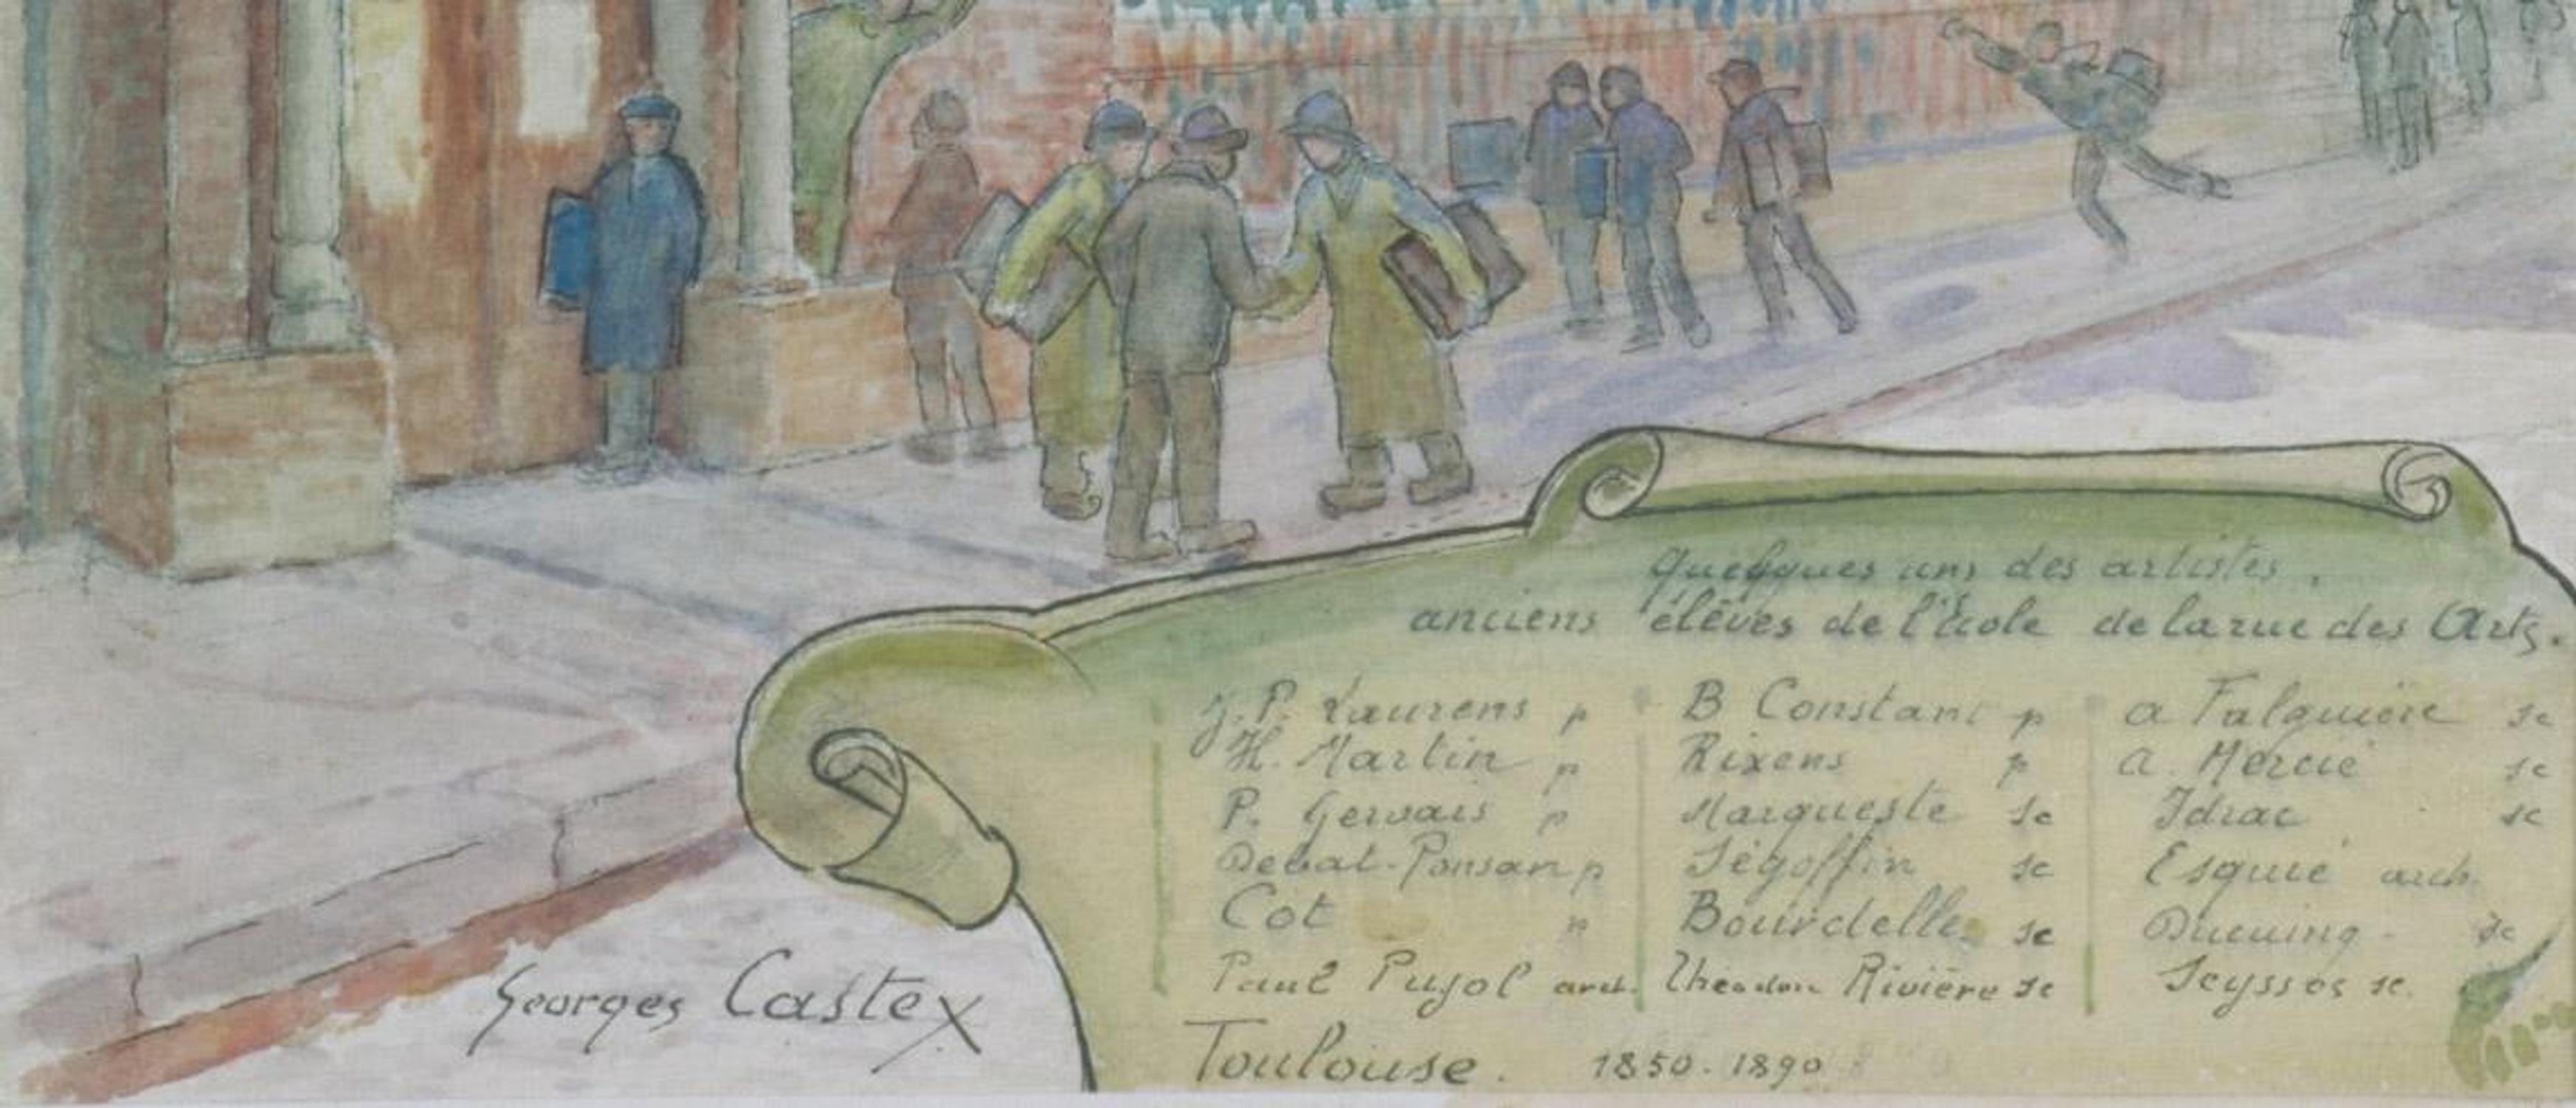 Quelques uns des artistes,
anciens élèves de l'École de la rue des Arts.
J. P. Laurens p
H. Martin p
P. Gervais p
Debat-Ponsan p
Cot p
Paul Pujol arch.
B Constant p
Rixens p
Marqueste sc
Ségoffin sc
Bourdelle sc
Théodore Rivière sc
a Falguière sc
a. Mercié sc
Idrac sc
Esquié arch.
Ducuing - sc
Seysses sc.
Toulouse. 1850-1890
Georges Castex